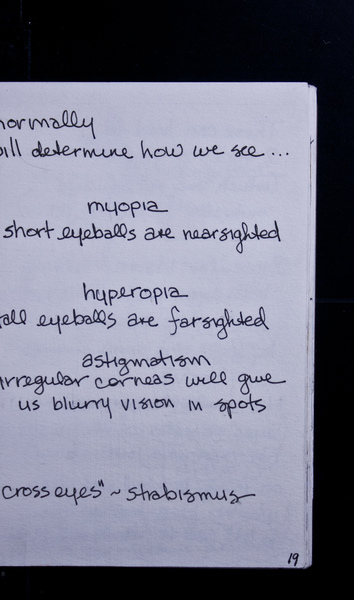 normally
will determine how we see ...
myopia
short eyeballs are nearsighted
hyperopia
tall eyeballs are farsighted
astigmatism
irregular corneas will give
us blurry vision in spots
cross eyes" ~ strabismus
19